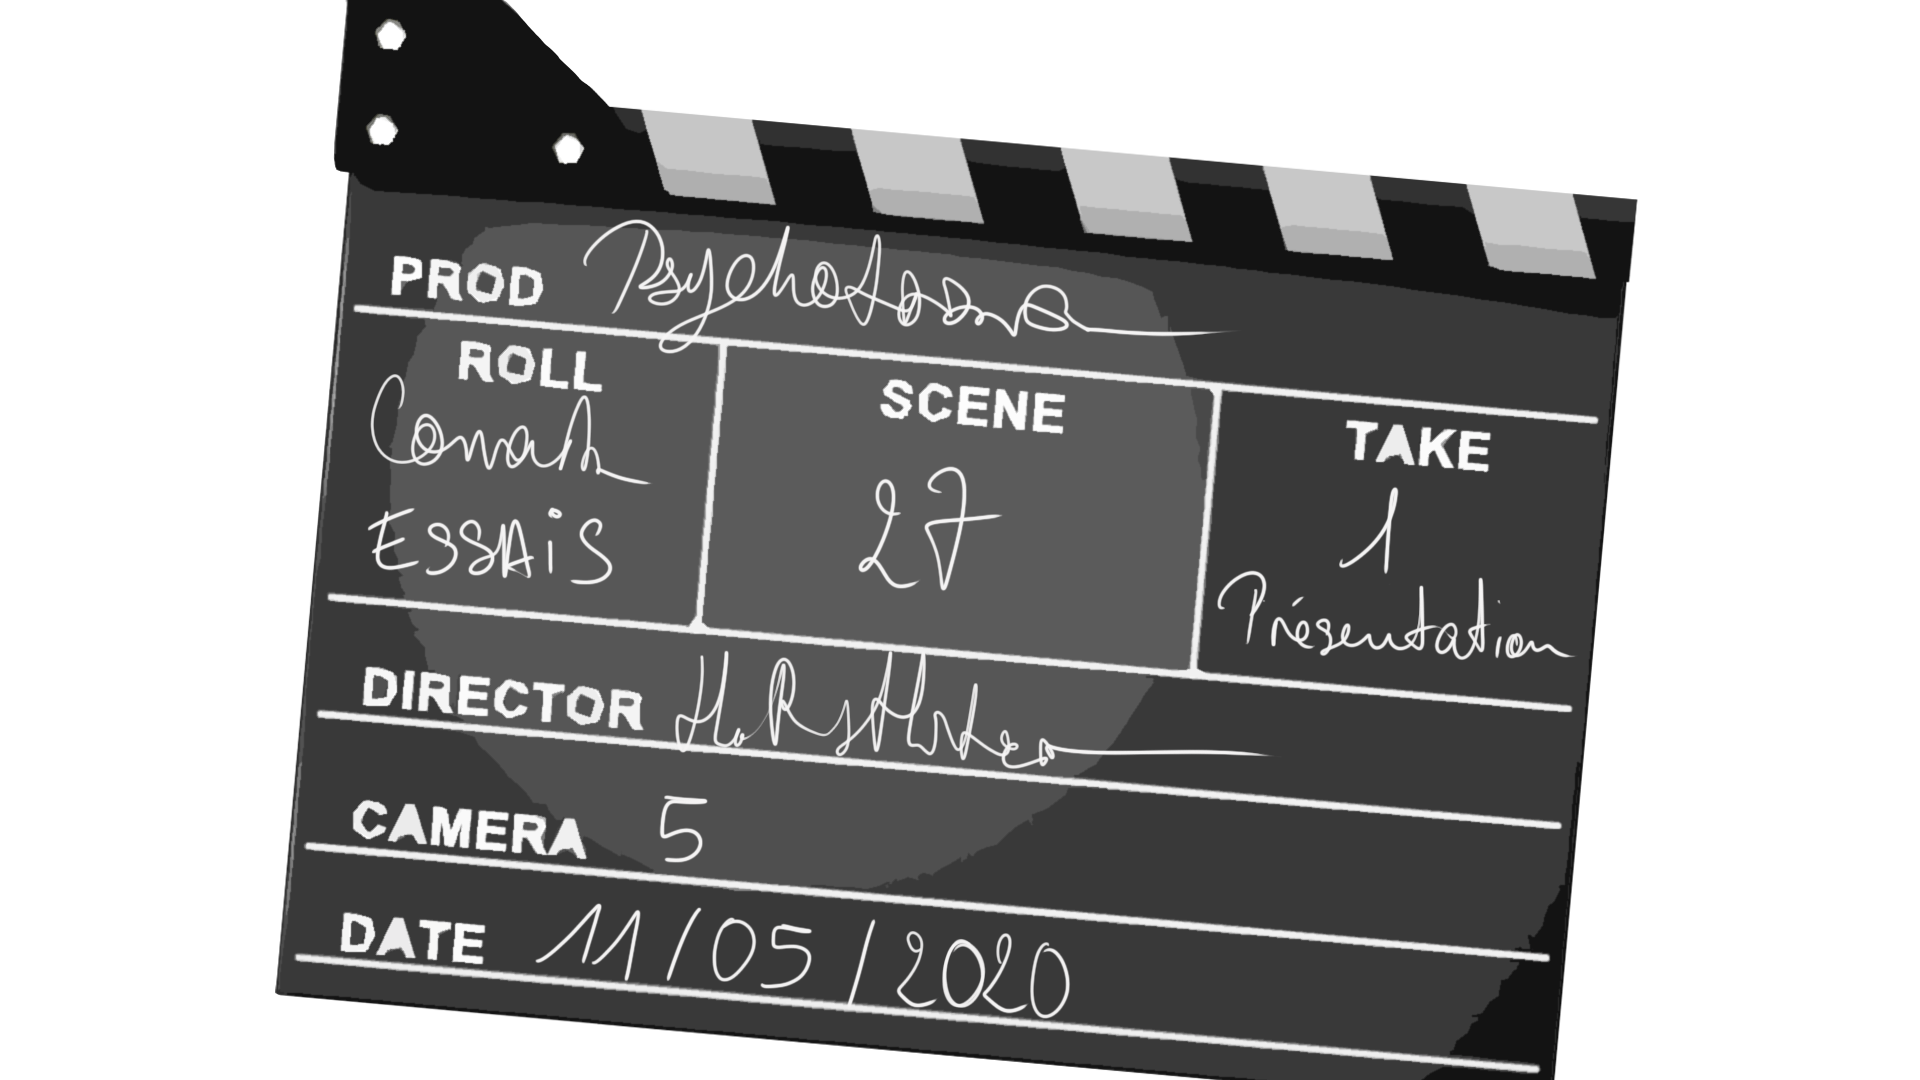 PROD
ROLL
ESSAiS
SCENE
27
TAKE
1
Présentation
DIRECTOR
CAMERA 5
DATE 11/05/2020